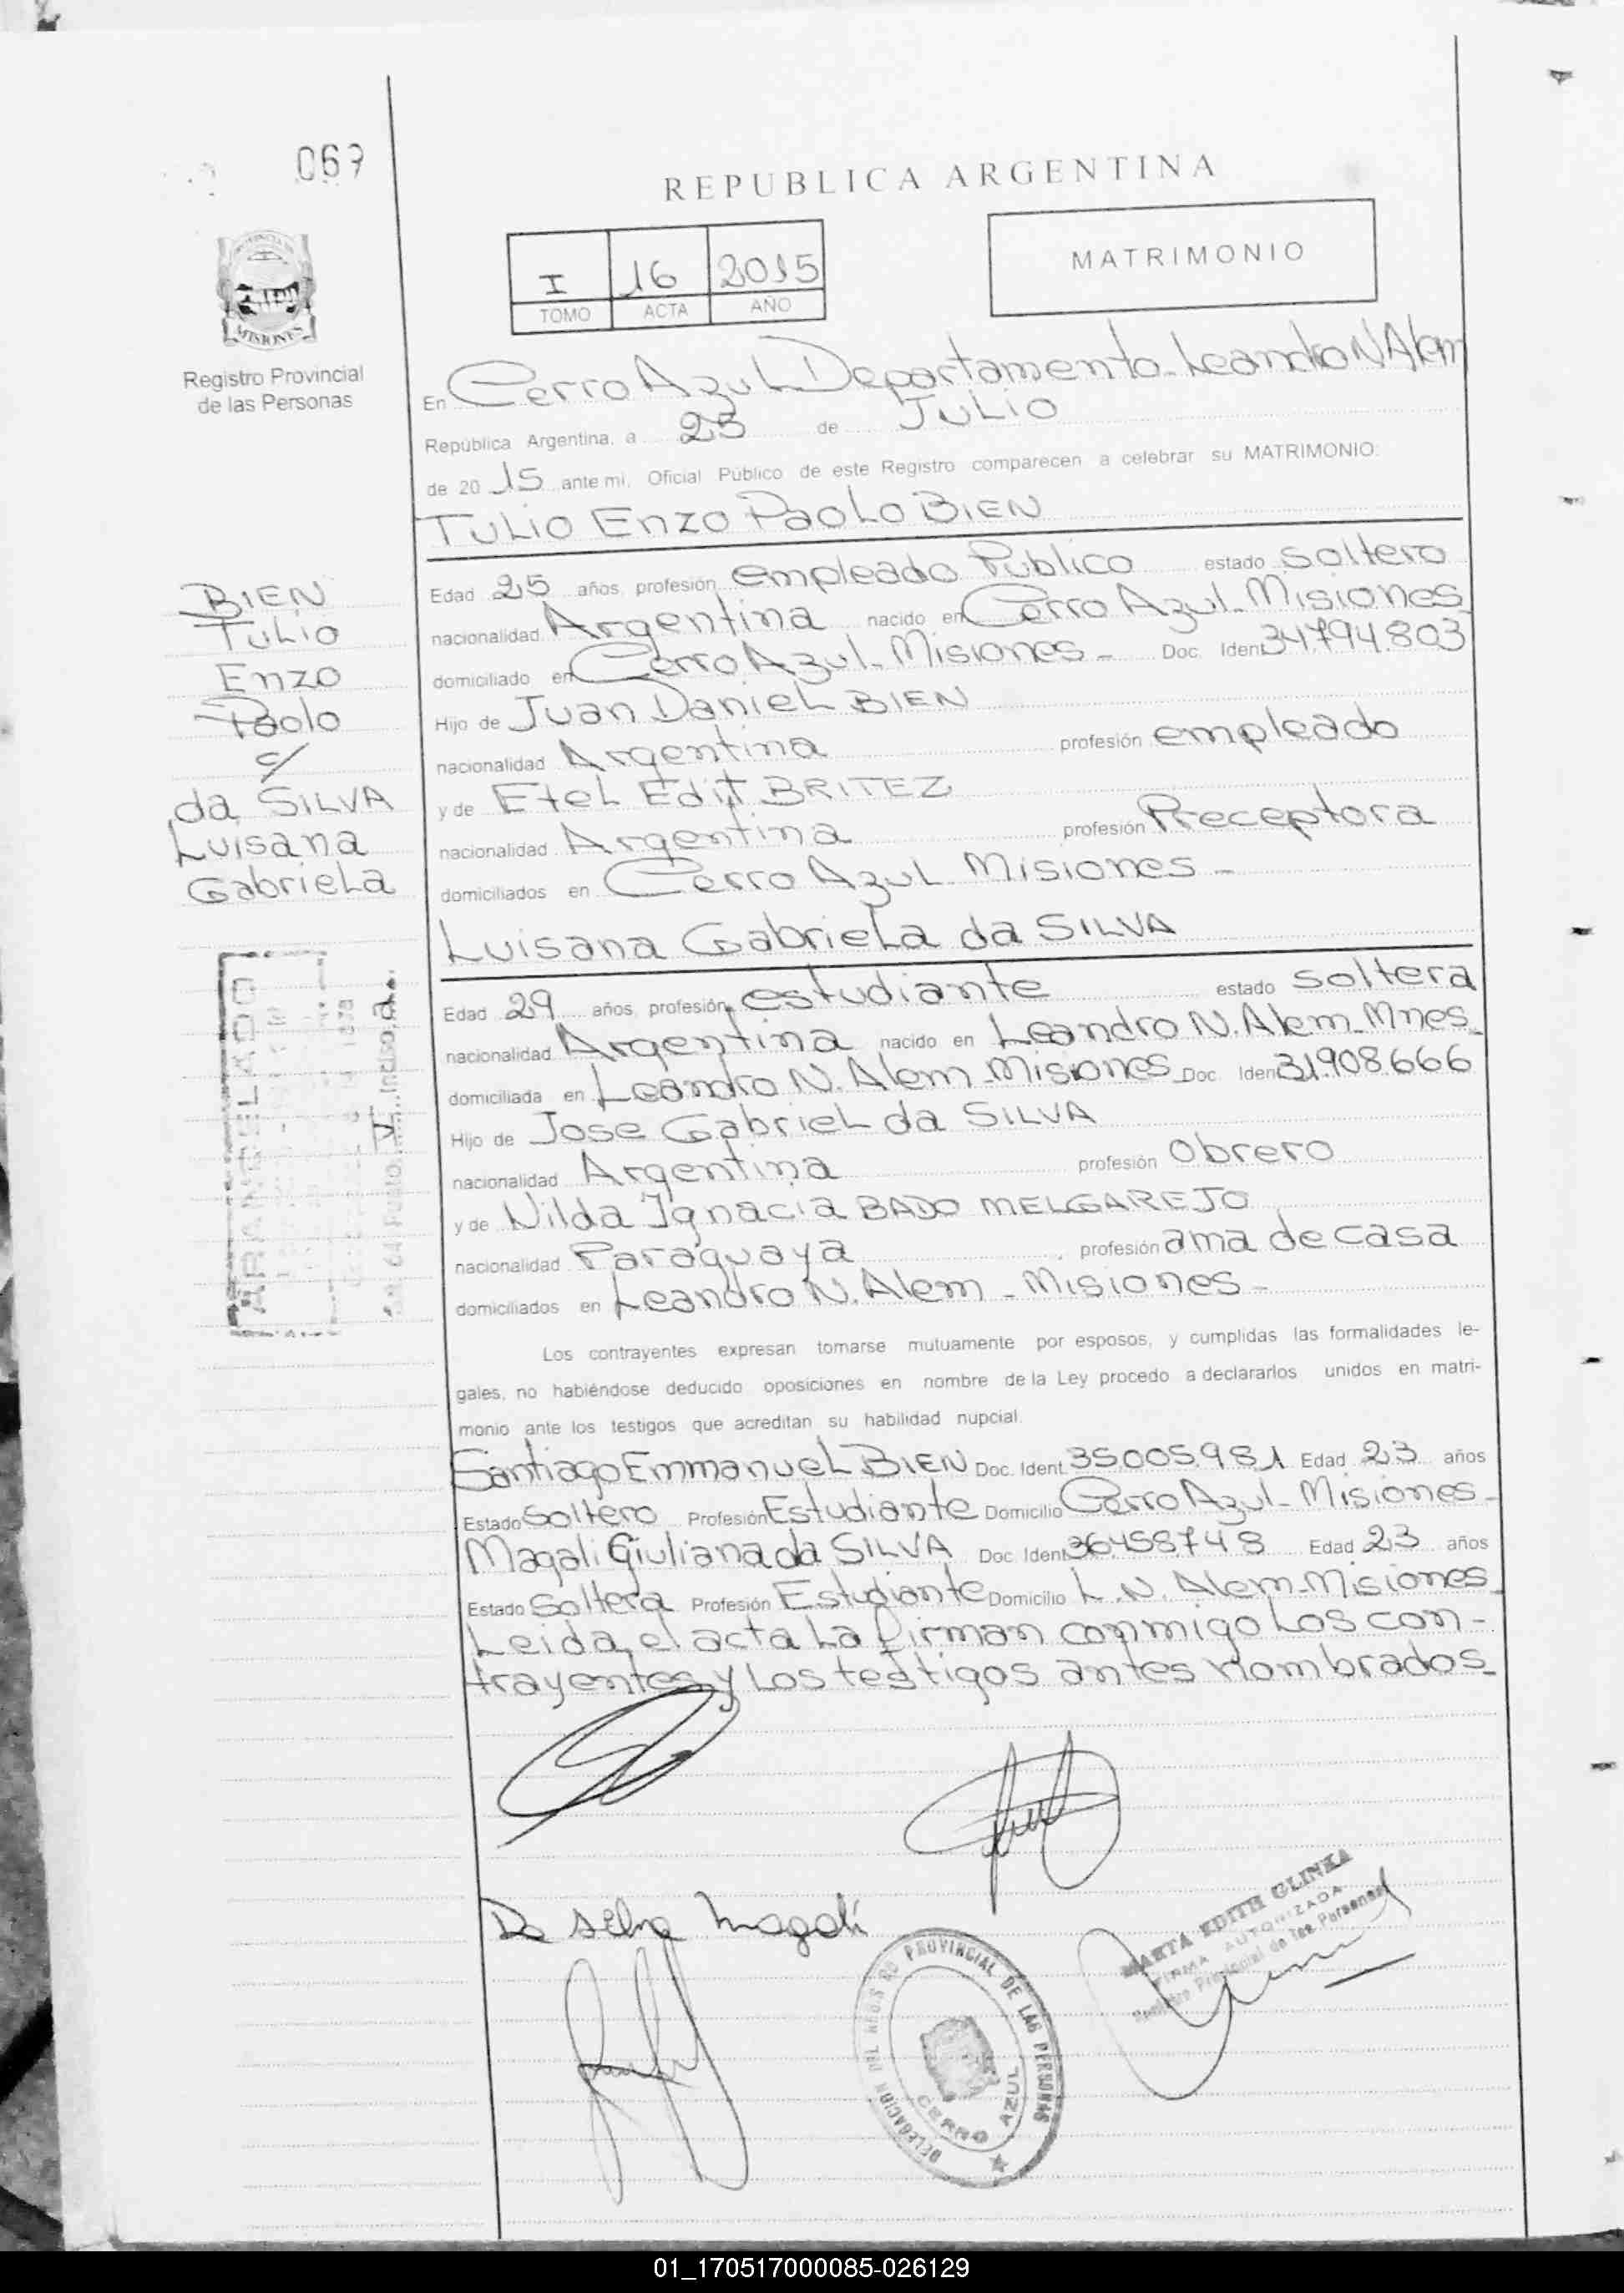 067
REPUBLICA ARGENTINA
I 16 2015
TOMO ACTA AÑO
MATRIMONIO
MISIONES
Registro Provincial
de las Personas
En Cerro Azul Departamento Leandro N Alem
República Argentina, a 25 de JULIO
de 20 15 ante mi, Oficial Público de este Registro comparecen a celebrar su MATRIMONIO:
TULIO Enzo Paolo BIEN
Edad 25 años, profesión empleado Publico estado soltero
nacionalidad Argentina nacido en Cerro Azul-Misiones
domiciliado en Cerro Azul-Misiones- Doc. Ident. 34.794.803
Hijo de Juan Daniel BIEN
nacionalidad Argentina profesión empleado
y de Etel Edit BRITEZ
nacionalidad Argentina profesión Preceptora
domiciliados en Cerro Azul Misiones-
Luisana Gabriela da SILVA
Edad 29 años, profesión estudiante estado soltera
nacionalidad Argentina nacido en Leandro N. Alem-Mnes
domiciliada en Leandro N. Alem-Misiones Doc. Ident. 31.908.666
Hijo de Jose Gabriel da SILVA
nacionalidad Argentina profesión Obrero
y de Nilda Ignacia BADO MELGAREJO
nacionalidad Paraguaya profesión ama de casa
domiciliados en Leandro N. Alem-Misiones-
BIEN
Tulio
Enzo
Paolo
c/
da SILVA
Luisana
Gabriela
ARANCELADO
Punto VI Inciso a
Los contrayentes expresan tomarse mutuamente por esposos, y cumplidas las formalidades le-
gales, no habiéndose deducido oposiciones en nombre de la Ley procedo a declararlos unidos en matri-
monio ante los testigos que acreditan su habilidad nupcial.
Santiago Emmanuel BIEN Doc. Ident. 35.005.981 Edad 23 años
Estado Soltero Profesión Estudiante Domicilio Cerro Azul-Misiones-
Magali Giuliana da SILVA Doc. Ident. 36.458.748 Edad 23 años
Estado Soltera Profesión Estudiante Domicilio L.N. Alem-Misiones
Leida el acta La firman conmigo Los con-
trayentes y Los testigos antes nombrados-
Da Silva Magalí
MARTA EDITH GLINKA
FIRMA AUTORIZADA
Registro Provincial de las Personas
DELEGACION DEL REGISTRO PROVINCIAL DE LAS PERSONAS
CERRO AZUL
01_170517000085-026129